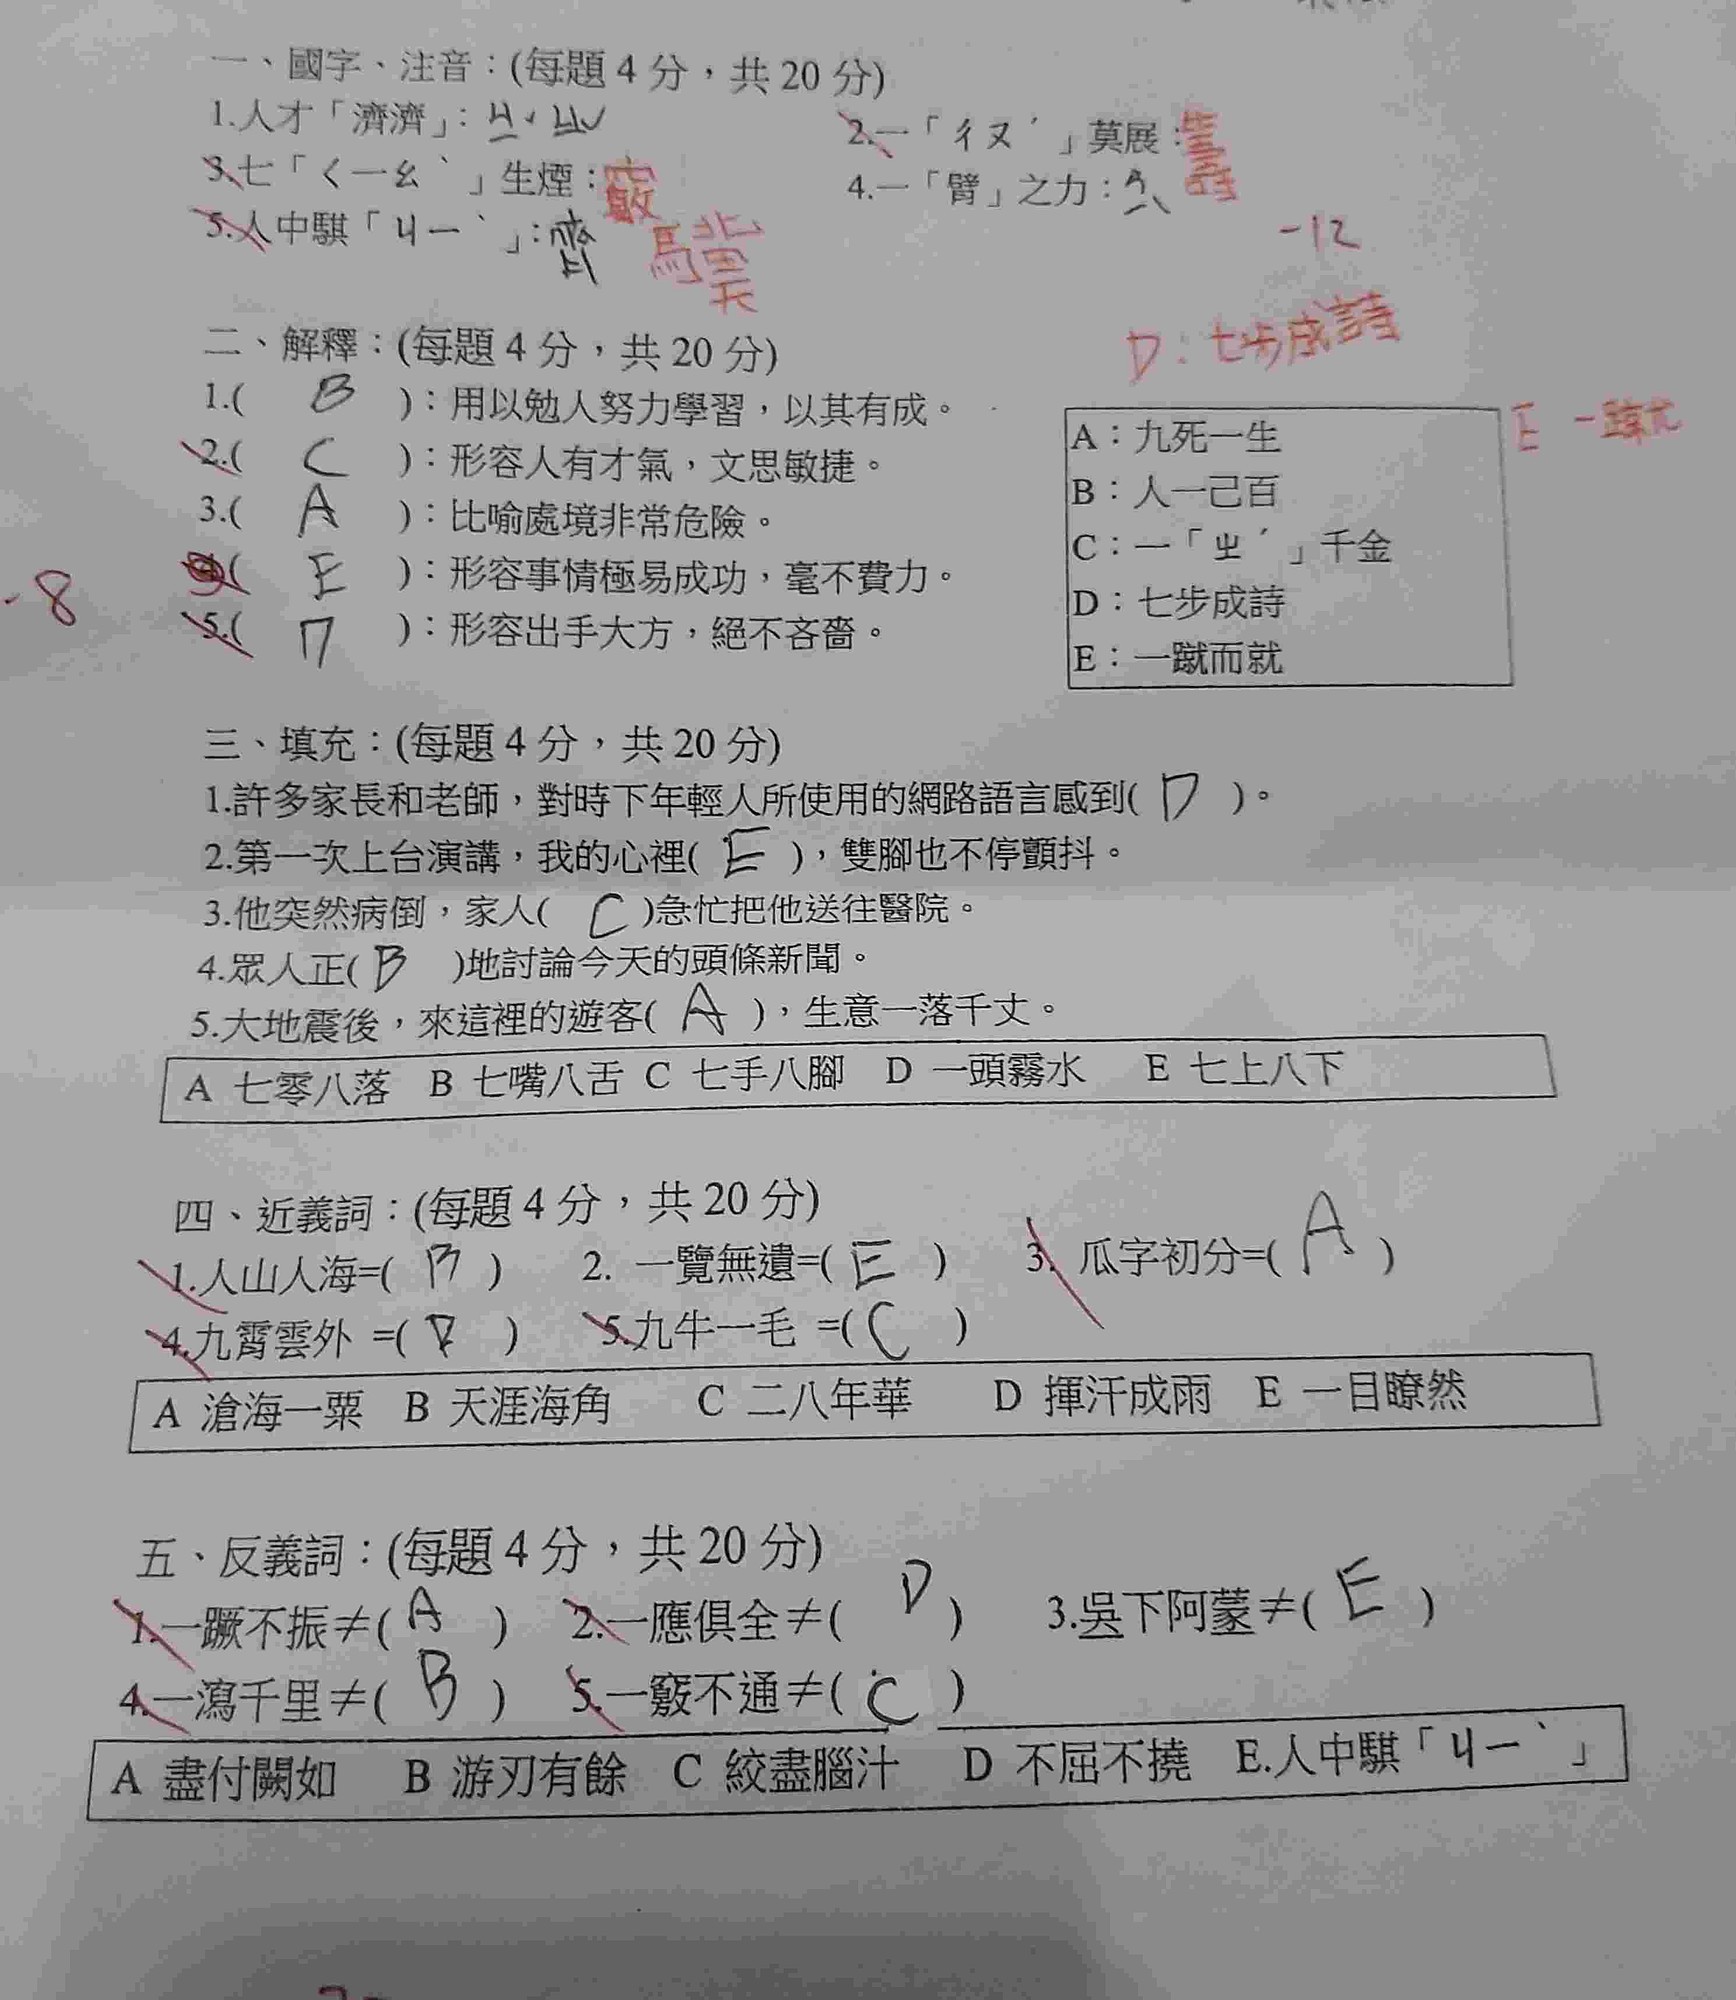 一、國字、注音：(每題 4 分，共 20 分)
1.人才「濟濟」：ㄐㄧˇ ㄐㄧˇ
2.一「ㄔㄡˊ」莫展：籌
3.七「ㄑㄧㄠˋ」生煙：竅
4.一「臂」之力：
5.人中騏「ㄐㄧˋ」：驥
-12
二、解釋：(每題 4 分，共 20 分)
D：七步成詩
1.( B )：用以勉人努力學習，以其有成。
2.( C )：形容人有才氣，文思敏捷。
3.( A )：比喻處境非常危險。
( E )：形容事情極易成功，毫不費力。
-8
5.( D )：形容出手大方，絕不吝嗇。
A：九死一生
E 一蹴
B：人一己百
C：一「ㄓˊ」千金
D：七步成詩
E：一蹴而就
三、填充：(每題 4 分，共 20 分)
1.許多家長和老師，對時下年輕人所使用的網路語言感到( D )。
2.第一次上台演講，我的心裡( E )，雙腳也不停顫抖。
3.他突然病倒，家人( C )急忙把他送往醫院。
4.眾人正( B )地討論今天的頭條新聞。
5.大地震後，來這裡的遊客( A )，生意一落千丈。
A 七零八落 B 七嘴八舌 C 七手八腳 D 一頭霧水 E 七上八下
四、近義詞：(每題 4 分，共 20 分)
1.人山人海=( B ) 2. 一覽無遺=( E ) 3. 瓜字初分=( A )
4.九霄雲外 =( D ) 5.九牛一毛 =( C )
A 滄海一粟 B 天涯海角 C 二八年華 D 揮汗成雨 E 一目瞭然
五、反義詞：(每題 4 分，共 20 分)
1.一蹶不振≠( A ) 2.一應俱全≠( D ) 3.吳下阿蒙≠( E )
4.一瀉千里≠( B ) 5.一竅不通≠( C )
A 盡付闕如 B 游刃有餘 C 絞盡腦汁 D 不屈不撓 E.人中騏「ㄐㄧˋ」